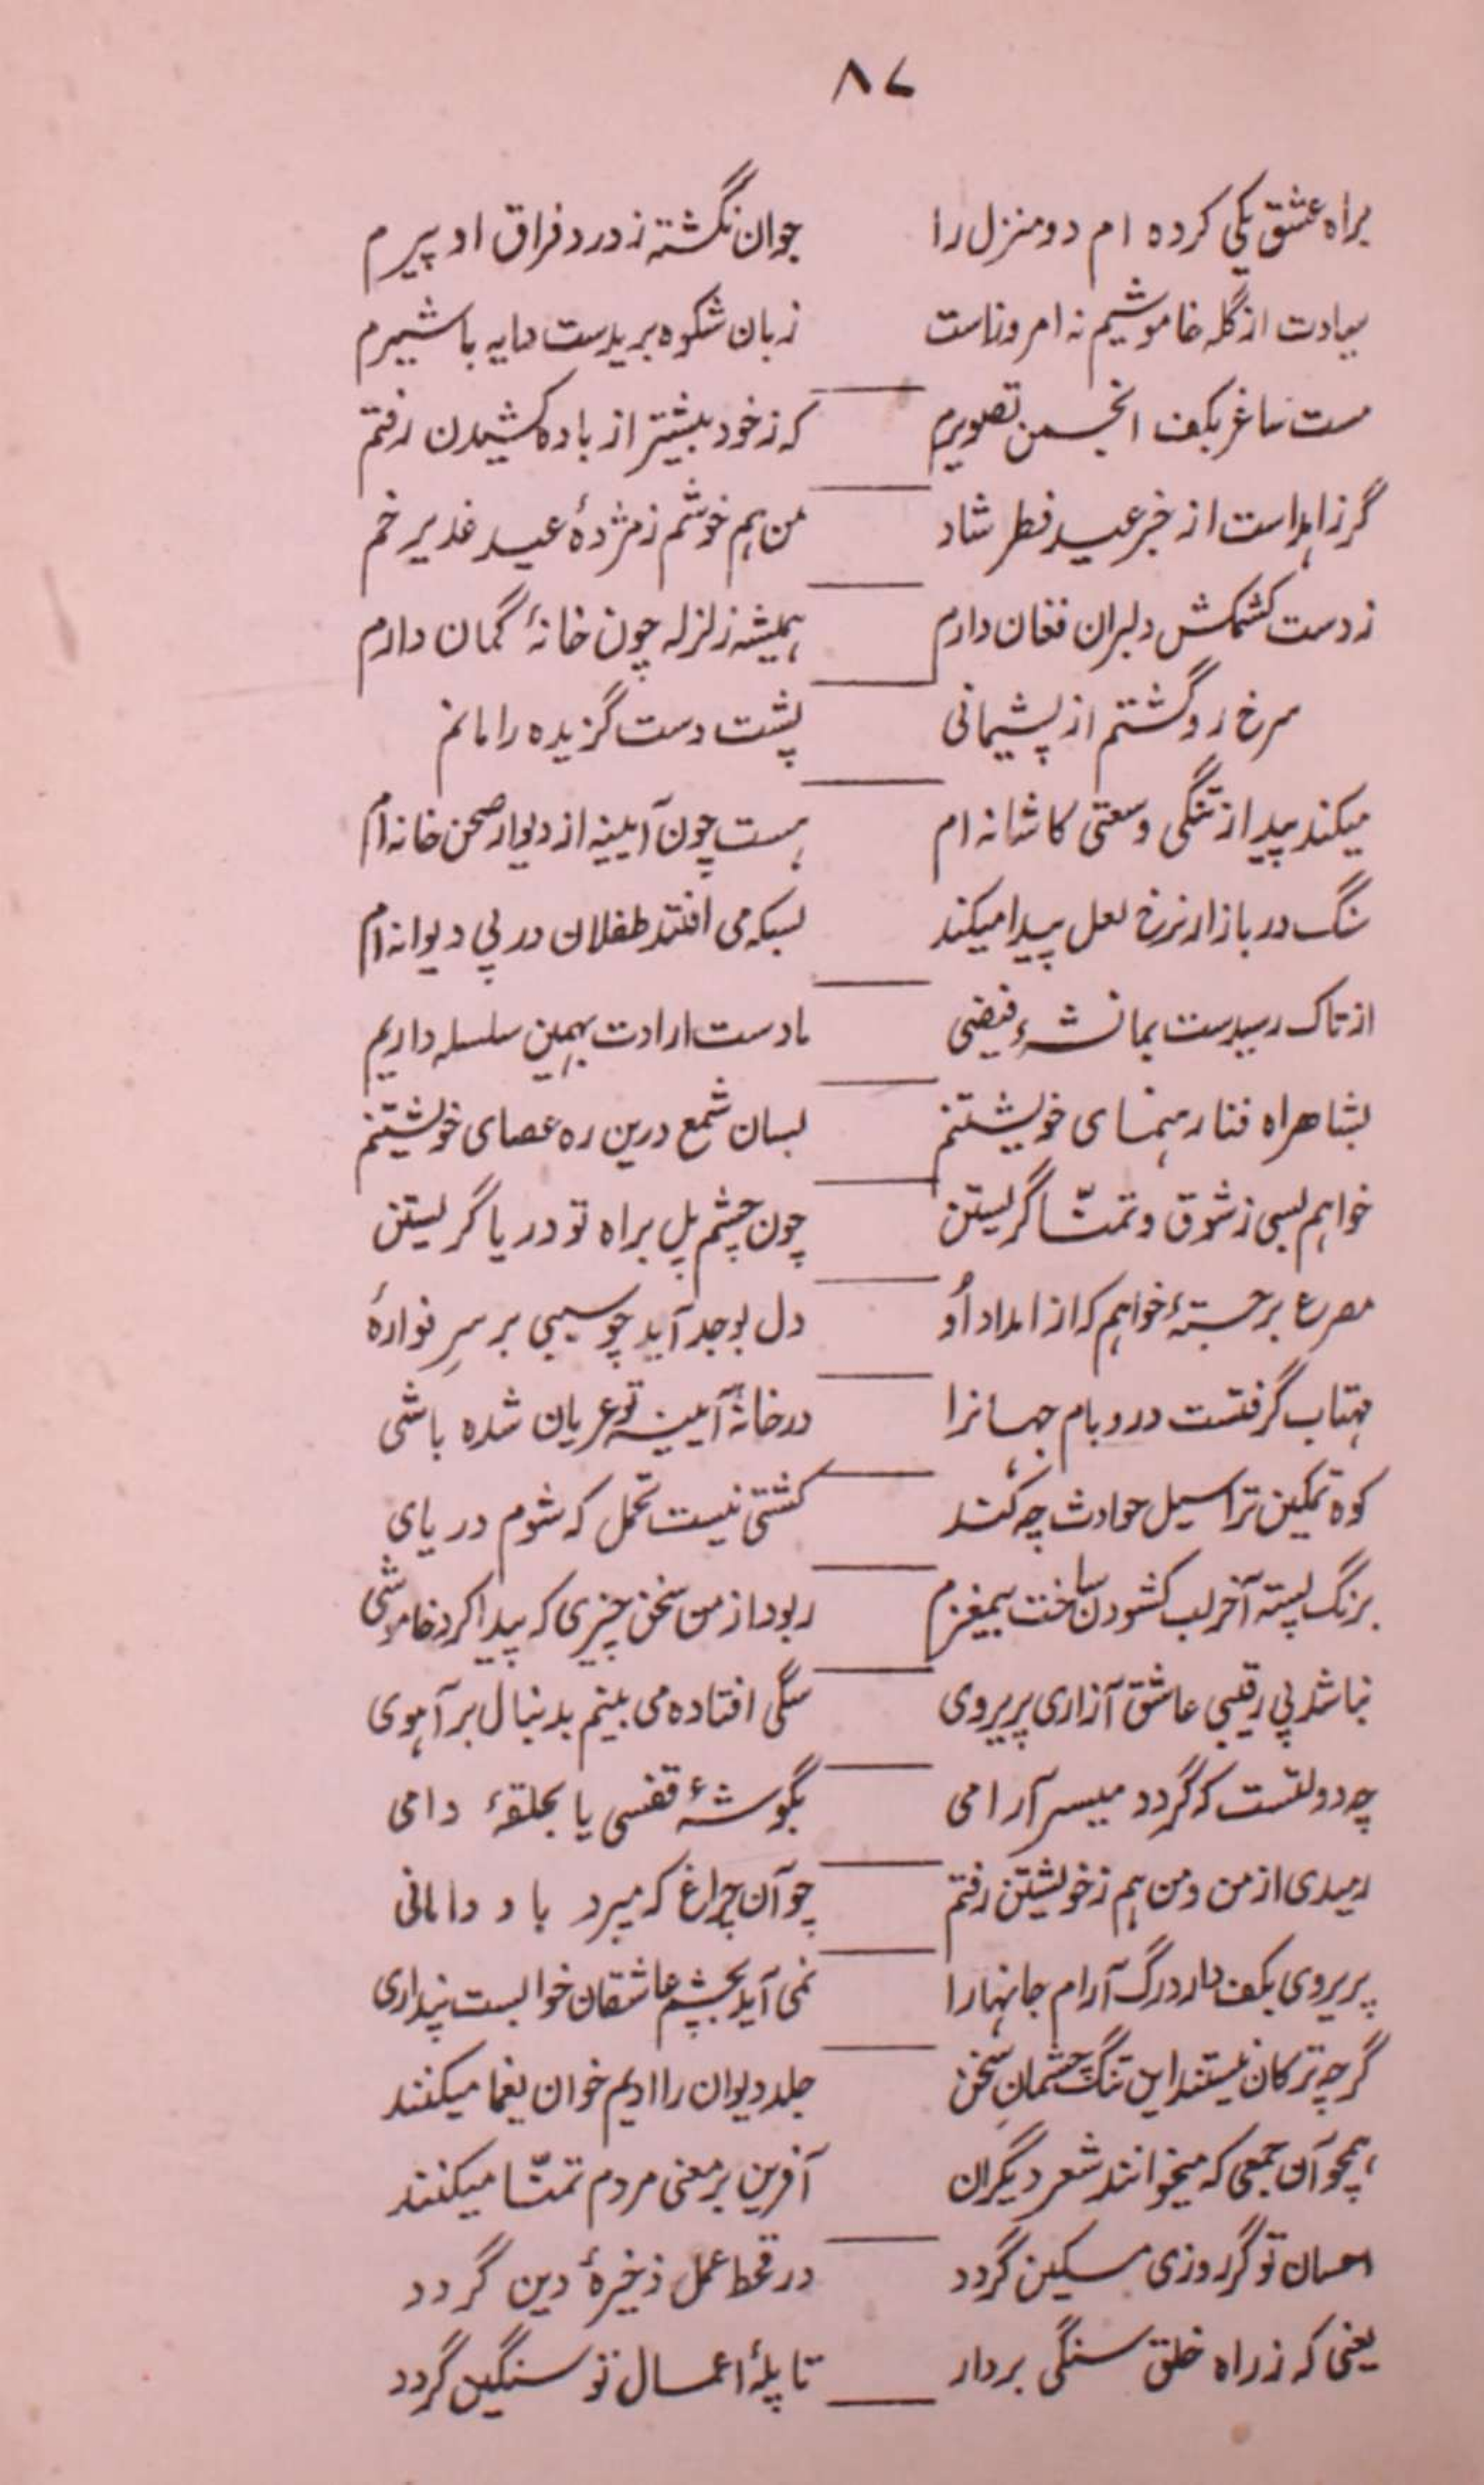 ۸۷
براه عشق یکی کرده ام دو منزل را جوان نگشته ز درد فراق او پیرم
بیادت از گله خاموشیم نه امروزاست زبان شکوه بریدست دایه با شیرم
مست ساغر بکف انجمن تصویرم که ز خود بیشتر از باده کشیدن رفتم
گر زاهد است از خبر عید فطر شاد من هم خوشم ز مژدهٔ عید غدیر خم
ز دست کشمکش دلبران فغان دارم همیشه زلزله چون خانهٔ کمان دارم
سرخ رو گشتم از پشیمانی پشت دست گزیده را مانم
میکند پیدا ز تنگی وسعتی کاشانه ام هست چون آیینه از دیوار صحن خانه ام
سنگ در بازار نرخ لعل پیدا میکند بسکه می افتند طفلان در پی دیوانه ام
از تاک رسیدست بما نشهٔ فیضی ما دست ارادت بهمین سلسله داریم
بشاهراه فنا رهنمای خویشتنم بسان شمع درین ره عصای خویشتنم
خواهم بسی ز شوق و تمنّا گریستن چون چشم پل براه تو دریا گریستن
مصرع برجستهٔ خواهم که از امداد اُو دل بوجد آید چو سیبی بر سرِ فوارهٔ
مهتاب گرفتست در و بام جهانرا در خانهٔ آیینه تو عریان شده باشی
کوه تمکین ترا سیل حوادث چه کند کشتی نیست تحمل که شوم دریای
برنگ پسته آخر لب کشودن ساخت بیمغزم ربود از من سخن چیزی که پیدا کرد خاموشی
نباشد بی رقیبی عاشق آزاری پریروی سگی افتاده می بینم بدنبال هر آهوی
چه دولتست که گردد میسر آرامی بگوشهٔ قفسی یا بحلقهٔ دامی
رمیدی از من و من هم ز خویشتن رفتم چو آن چراغ که میرد باد دامانی
پریروی بکف دارد رگ آرام جانهارا نمی آید بچشم عاشقان خوابست پنداری
گرچه ترکان نیستند این تنگ چشمانِ سخن جلد دیوان را ادیم خوان یغما میکنند
همچو آن جمعی که میخوانند شعر دیگران آفرین بر معنی مردم تمنّا میکنند
احسان تو گر روزی مسکین گردد در قحط عمل ذخیرهٔ دین گردد
یعنی که ز راه خلق سنگی بردار تا پلهٔ اعمال تو سنگین گردد